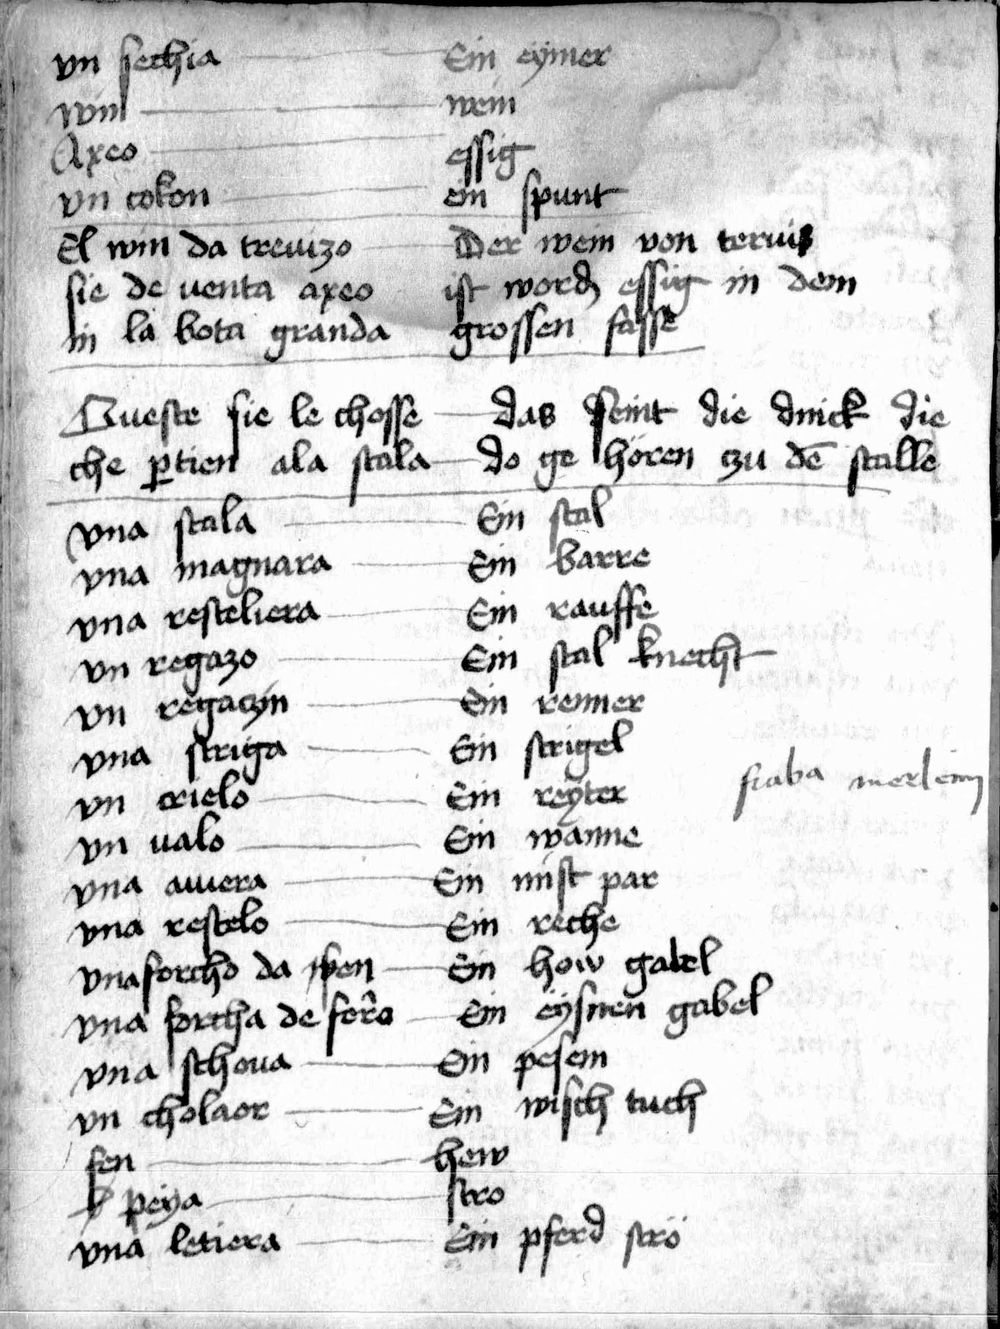 vn sechia Ein eymer
win wein
Axeo essig
vn cokon ein spunt
El win da trevizo Der wein von tervis
sie de venta axeo ist word essig in dem
in la bota granda grossen fasse
Queste sie le chosse das seint die dnick die
che ptien ala stala do ge hören czu dē stalle
vna stala Ein stal
vna magnara Ein barre
vna resteliera Ein rauffe
vn regazo Ein stal knecht
vn regaczin Ein renner
vna striga Ein strigel
vn crielo Ein reyter
fraba merlein
vn valo Ein wanne
vna civiera Ein mist par
vna restelo Ein reche
vna forcho da fen Ein how gabel
vna fortha de fero Ein eysnen gabel
vna schova Ein pesem
vn cholaor Ein wisch tuch
fen hew
peya stro
vna letiera Ein pferd strö